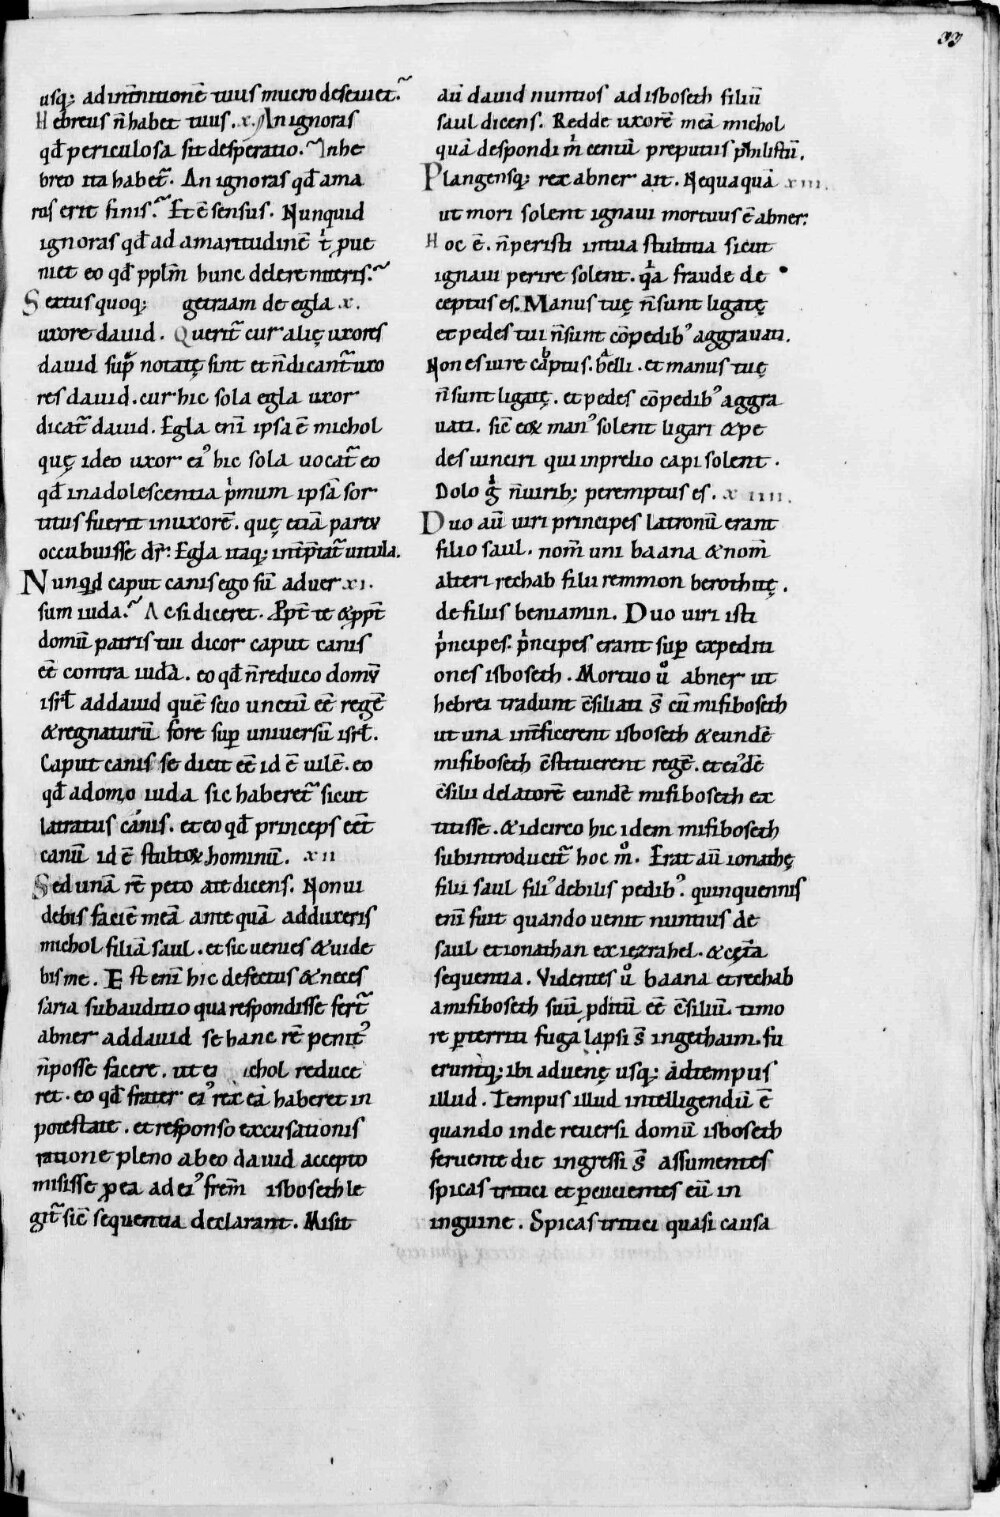 33
usq; ad int̄nitionē tuus mucro deseuiet.
Hebreus n̄ habet tuus. x. An ignoras
qđ periculosa sit desperatio. In he
breo ita habet̄. An ignoras qđ ama
rus erit finis. Et ē sensus. Nunquid
ignoras qđ ad amaritudinē t̓ ꝓue
niet eo qđ ppl̄m hunc delere niteris.
Sextus quoq; getraam de egla .x.
uxore dauid. Querit̄ cur alię uxores
dauid sup̄ notatę sint et n̄ dicant̄ uxo
res dauid. cur hic sola egla uxor
dicat̄ dauid. Egla eni̅ ipsa ē michol
quę ideo uxor ei᾿ hic sola uocat̄ eo
qđ in adolescentia p̓mum ipsā sor
titus fuerit in uxorē. quę etiā partu
occubuisse dr̄. Egla itaq; int̄p̄tat̄ uitula.
Nunqd caput canis ego sū aduer xi.
sum iuda. Ac si diceret. Ꝓpt̄ te & ꝓpt̄
domū patris tui dicor caput canis
eē contra iudā. eo qđ n̄ reduco domū
isrł ad dauid quē scio unctū eē regē
& regnaturū fore sup̄ uniuersū isrł.
Caput canis se dicit eē id ē uilē. eo
qđ a domo iuda sic haberet̄ sicut
latratus canis. et eo qđ princeps eēt
canū id ē stultoꝝ hominū. xii
Sed unā rē peto a te dicens. Non ui
debis faciē meā ante quā adduxeris
michol filiā saul. et sic uenies & uide
bis me. Est eni̅ hic defectus & neces
saria subauditio qua respondisse fert̄
abner ad dauid se hanc rē penit᾿
n̄ posse facere. ut ei ichol reduce
ret. eo qđ frater ei᾿ rex eā haberet in
potestate. et responso excusationis
ratione pleno ab eo dauid accepto
misisse ꝓ ea ad ei᾿ frem̄ isboseth le
git̄ sic̄ sequentia declarant. Misit
aū dauid nuntios ad isboseth filiū
saul dicens. Redde uxorē meā michol
quā despondi m̓ centū preputiis philistiū.
Plangensq; rex abner ait. Nequaquā xiii.
ut mori solent ignaui mortuus ē abner:
Hoc ē. n̄ peristi in tua stultitia sicut
ignaui perire solent. q̓a fraude de
ceptus es. Manus tuę n̄ sunt ligatę
et pedes tui n̄ sunt cōpedib᾿ aggrauati.
Non es iure captus. belli. et manus tuę
n̄ sunt ligatę. et pedes cōpedib᾿ aggra
uati. sic̄ eoꝝ man᾿ solent ligari & pe
des uinciri qui in prelio capi solent.
Dolo g̓ n̄ uirib; peremptus es. xiiii.
Duo aū uiri principes latronū erant
filio saul. nom̄ uni baana & nom̄
alteri rechab filii remmon berothitę.
de filiis beniamin. Duo uiri isti
p̓ncipes. p̓ncipes erant sup̄ expediti
ones isboseth. Mortuo ů abner ut
hebrei tradunt c̄siliati s̄ cū mifiboseth
ut una int̄ficerent isboseth & eundē
mifiboseth c̄stituerent regē. et ei᾿dē
c̄silii delatorē eundē mifiboseth ex
titisse. & idcirco hic idem mifiboseth
subintroducit̄ hoc m̊. Erat aū ionathę
filii saul fili᾿ debilis pedib᾿. quinquennis
eni̅ fuit quando uenit nuntius de
saul et ionathan ex iezrahel. & cęt̄a
sequentia. Videntes ů baana et rechab
a mifiboseth suū ꝓditū eē c̄siliū. timo
re ꝑterriti fuga lapsi s̄ in gethaim. fu
eruntq; ibi aduenę usq; ad tempus
illud. Tempus illud intelligendū ē
quando inde reuersi domū isboseth
feruente die ingressi s̄ assumentes
spicas tritici et ꝑcutientes eū in
inguine. Spicas tritici quasi causa